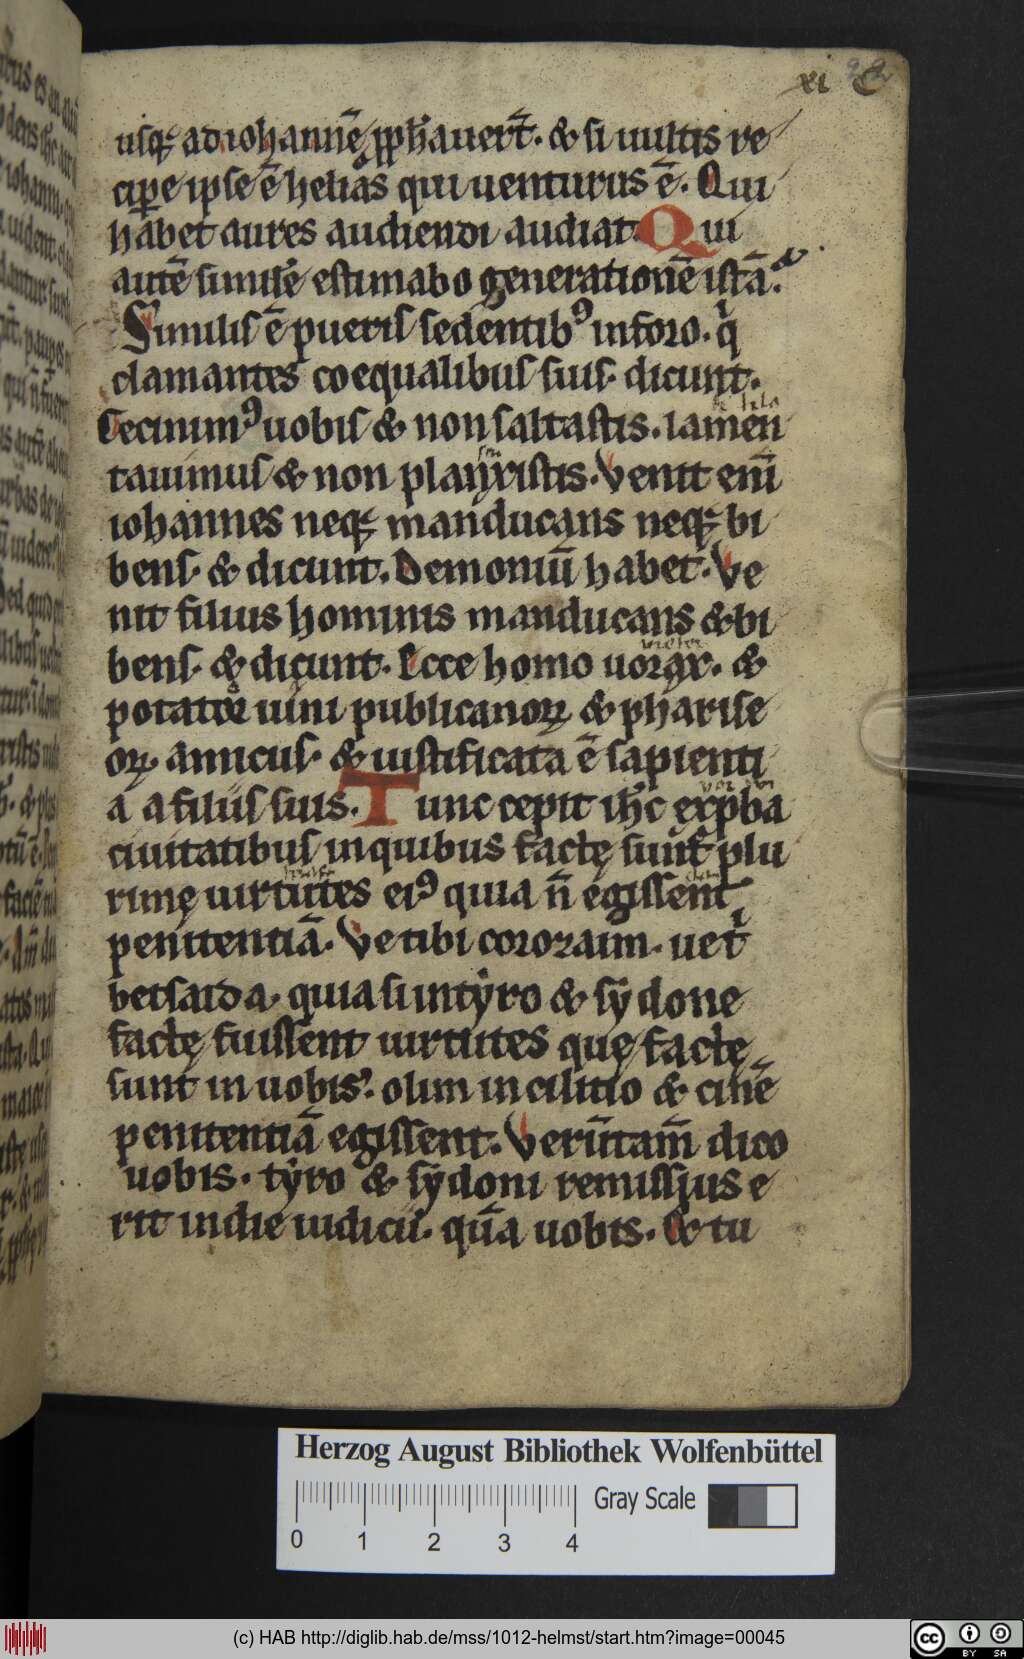 xi
usq; ad iohannē p̱pħauerт̄. & si uultis re
ciꝑe ipse ē helias qui uenturus ē. Qui
habet aures audiendi audiat. Qui
autē similē estimabo generationē istā.
Similis ē pueris sedentib⁹ in foro. q̇
clamantes coequalibus suis. dicunt.
Cecinim⁹ uobis & non saltastis. lamen
tauimus & non planxistis. Venit enī
iohannes neq; manducans neq; bi
bens. & dicunt. Demoniū habet. Ve
nit filius hominis manducans & bi
bens. & dicunt. Ecce homo uorax. &
potator uini publicanoꝝ & pharise
oꝝ. amicus. & iustificata ē sapienti
a a filiis suis. Tunc cepit ihc̄ exp̱ba
ciuitatibus in quibus factę sunt plu
rimę uirtutes ei⁹ quia n̄ egissent
penitentiā. Ve tibi corozaim. ue t̓
betsaida. quia si in tẏro & sẏdone
factę fuissent uirtutes quę factę
sunt in uobis. olim in cilitio & cinē
penitentiā egissent. Verūtam̄ dico
uobis. tẏro & sẏdoni remissius e
rit in die iudicii. qūa uobis. & tu
Herzog August Bibliothek Wolfenbüttel
Gray Scale
0 1 2 3 4
(c) HAB http://diglib.hab.de/mss/1012-helmst/start.htm?image=00045
cc BY SA